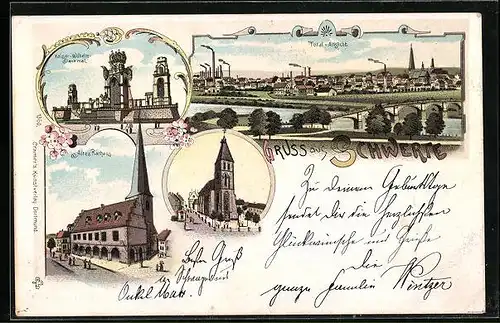 Kaiser-Wilhelm-
Denkmal.
Total-Ansicht.
Gruss aus Schwerte
Altes Rathaus
Cramer's Kunstverlag, Dortmund.
Zu deinem Geburtstage
sendet dir die herzlichsten
Glückwünsche und Grüße
die
ganze Familie Wintzer
Besten Gruß
Onkel